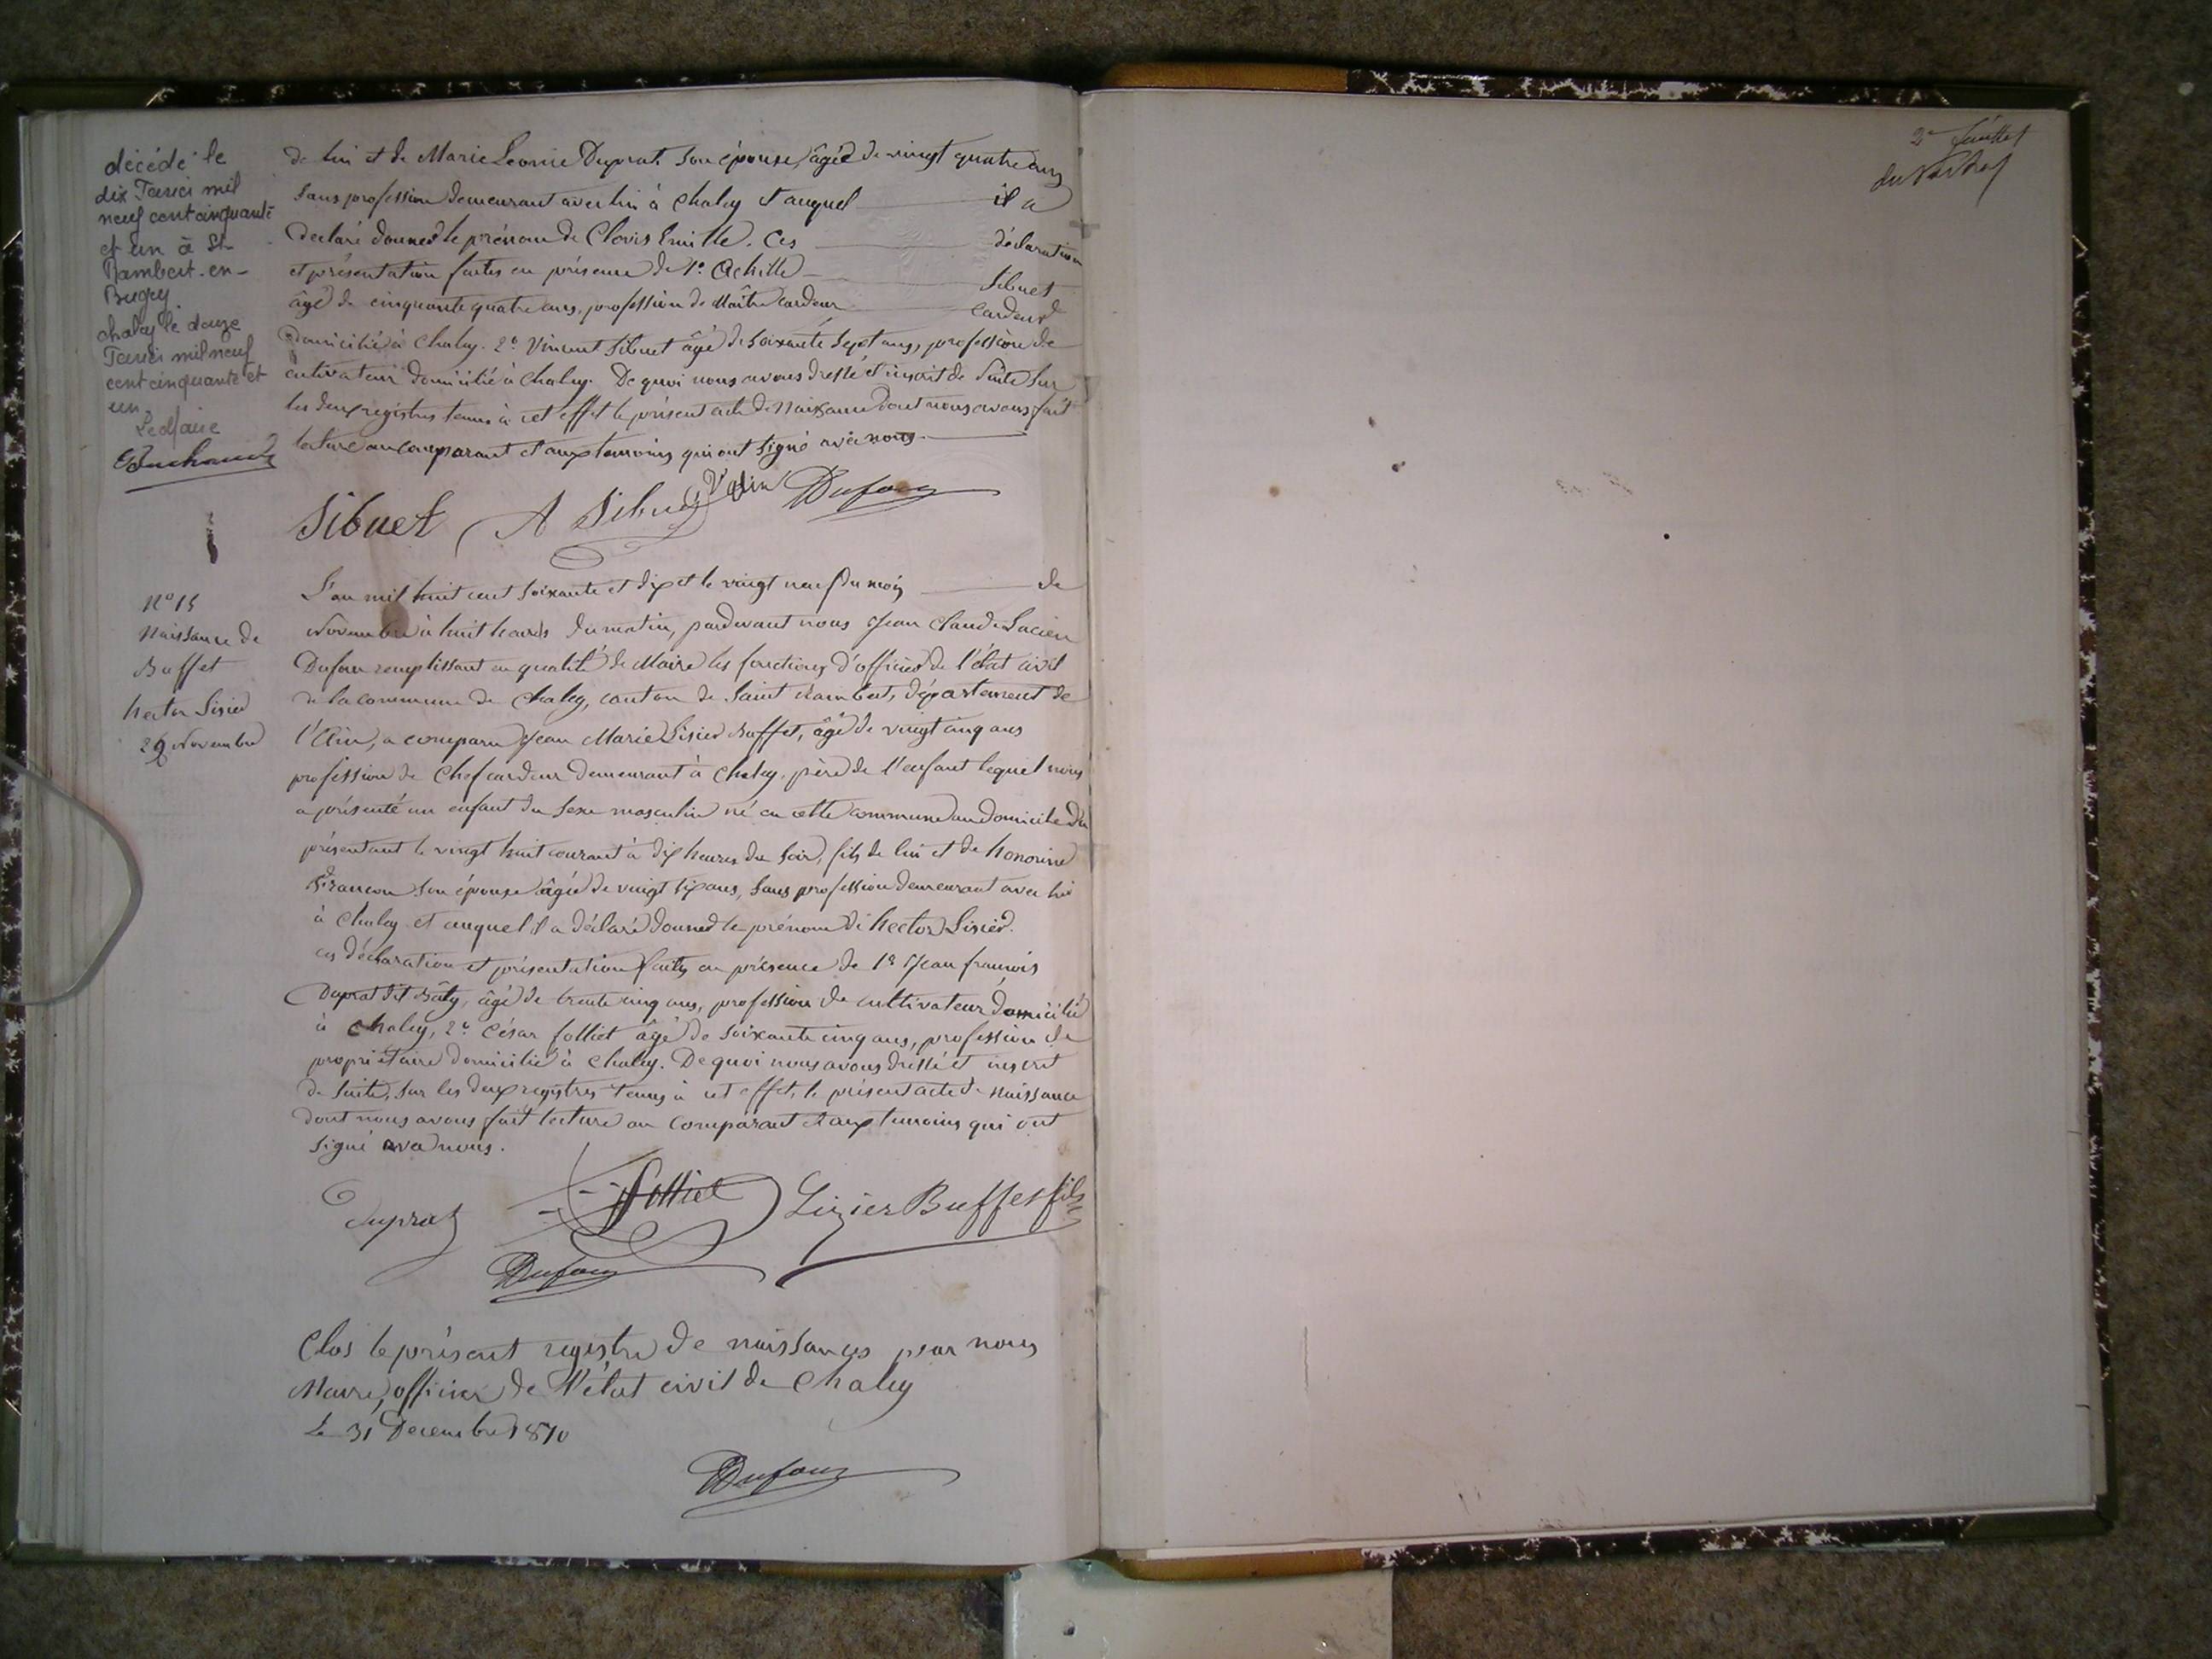 décédé le
dix Janvier mil
neuf cent cinquante
et un à St-
Rambert-en-
Bugey.
chaley le douze
Janvier mil neuf
cent cinquante et
un,
Le Maire
de lui et de Marie Léonie Duprat son épouse, âgée de vingt quatre ans
sans profession demeurant avec lui à Chaley et auquel il a
déclaré donner le prénom de Clovis Emille. Ces déclaration
et présentation faites en présence de 1° Achille Sibuet
âgé de cinquante quatre ans, profession de Maître Cardeur cardeur
domicilié à Chaley. 2° Vincent Sibuet âgé de soixante sept ans, profession de
cultivateur domicilié à Chaley. De quoi nous avons dressé et inscrit de suite sur
les deux registres tenus à cet effet le présent acte de Naissance dont nous avons fait
lecture au comparant et aux temoins qui ont signé avec nous.
Sibuet A Sibuet Dufour
N° 15
Naissance de
Buffet
hector Lisier
29 Novembre
L'an mil huit cent soixante et dix et le vingt neuf du mois de
Novembre à huit heures du matin, pardevant nous Jean Claude Lucien
Dufour remplissant en qualité de Maire les fonctions d'officier de l'état civil
de la commune de Chaley, canton de Saint Rambert, département de
l'Ain, a comparu Jean Marie Lisier Buffet, âgé de vingt cinq ans
profession de Chef cardeur demeurant à Chaley, père de l'enfant lequel nous
a présenté un enfant du sexe masculin né en cette commune au domicile du
présentant le vingt huit courant à dix heures du soir, fils de lui et de honorine
Françon son épouse âgée de vingt six ans, sans profession demeurant avec lui
à Chaley et auquel il a déclaré donner le prénom de hector Lisier.
ces déclaration et présentation faites en présence de 1° Jean françois
Duprat dit Bâty, âgé de trente cinq ans, profession de cultivateur domicilié
à Chaley, 2° César folliet âgé de soixante cinq ans, profession de
propriétaire domicilié à Chaley. De quoi nous avons dressé et inscrit
de suite, sur les deux registres tenus à cet effet, le présent acte de naissance
dont nous avons fait lecture au comparant et aux temoins qui ont
signé avec nous.
Duprat folliet Lizier Buffet fils
Dufour
Clos le présent registre de naissances par nous
Maire, officier de l'état civil de Chaley
Le 31 Decembre 1870
Dufour
2e feuillet